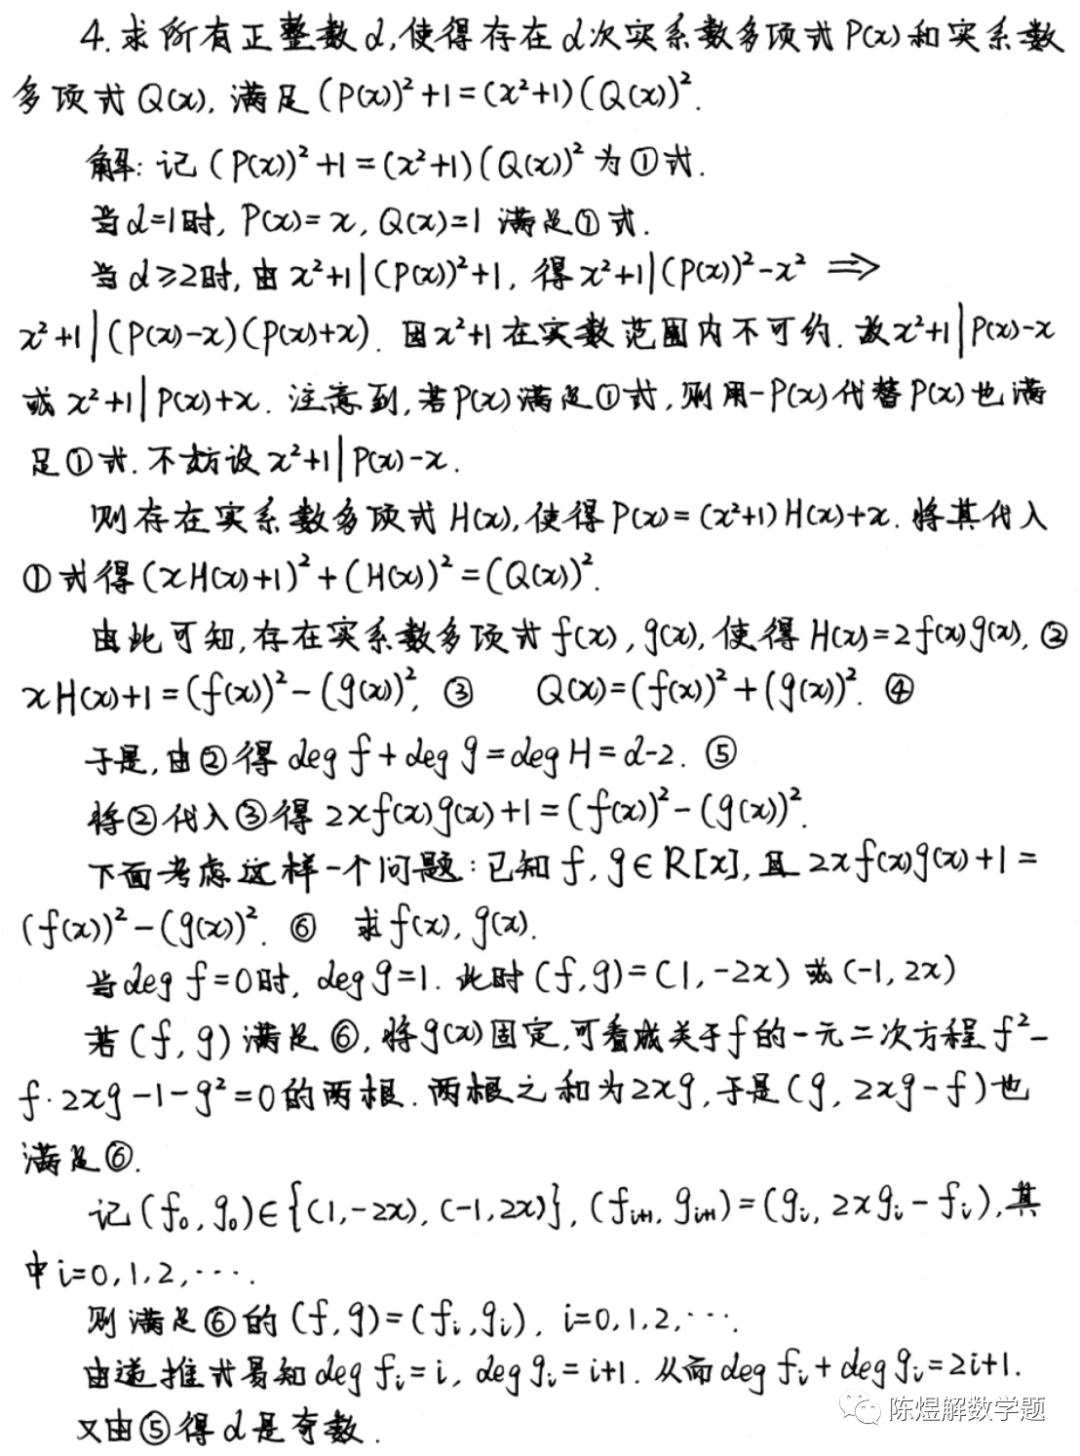 4.求所有正整数d,使得存在d次实系数多项式P(x)和实系数
多项式Q(x),满足(P(x))²+1=(x²+1)(Q(x))².
解:记(P(x))²+1=(x²+1)(Q(x))²为①式.
当d=1时,P(x)=x,Q(x)=1满足①式.
当d≥2时,由x²+1|(P(x))²+1,得x²+1|(P(x))²-x² ⟹
x²+1|(P(x)-x)(P(x)+x).因x²+1在实数范围内不可约.故x²+1|P(x)-x
或x²+1|P(x)+x.注意到,若P(x)满足①式,则用-P(x)代替P(x)也满
足①式.不妨设x²+1|P(x)-x.
则存在实系数多项式H(x),使得P(x)=(x²+1)H(x)+x.将其代入
①式得(xH(x)+1)²+(H(x))²=(Q(x))².
由此可知,存在实系数多项式f(x),g(x),使得H(x)=2f(x)g(x),②
xH(x)+1=(f(x))²-(g(x))²,③ Q(x)=(f(x))²+(g(x))².④
于是,由②得deg f+deg g=deg H=d-2.⑤
将②代入③得2xf(x)g(x)+1=(f(x))²-(g(x))².
下面考虑这样一个问题:已知f,g∈R[x],且2xf(x)g(x)+1=
(f(x))²-(g(x))².⑥ 求f(x),g(x).
当deg f=0时,deg g=1.此时(f,g)=(1,-2x)或(-1,2x)
若(f,g)满足⑥,将g(x)固定,可看成关于f的一元二次方程f²-
f·2xg-1-g²=0的两根.两根之和为2xg,于是(g,2xg-f)也
满足⑥.
记(f₀,g₀)∈{(1,-2x),(-1,2x)},(fᵢ₊₁,gᵢ₊₁)=(gᵢ,2xgᵢ-fᵢ),其
中i=0,1,2,⋯.
则满足⑥的(f,g)=(fᵢ,gᵢ),i=0,1,2,⋯.
由递推式易知deg fᵢ=i,deg gᵢ=i+1.从而deg fᵢ+deg gᵢ=2i+1.
又由⑤得d是奇数.
陈煜解数学题